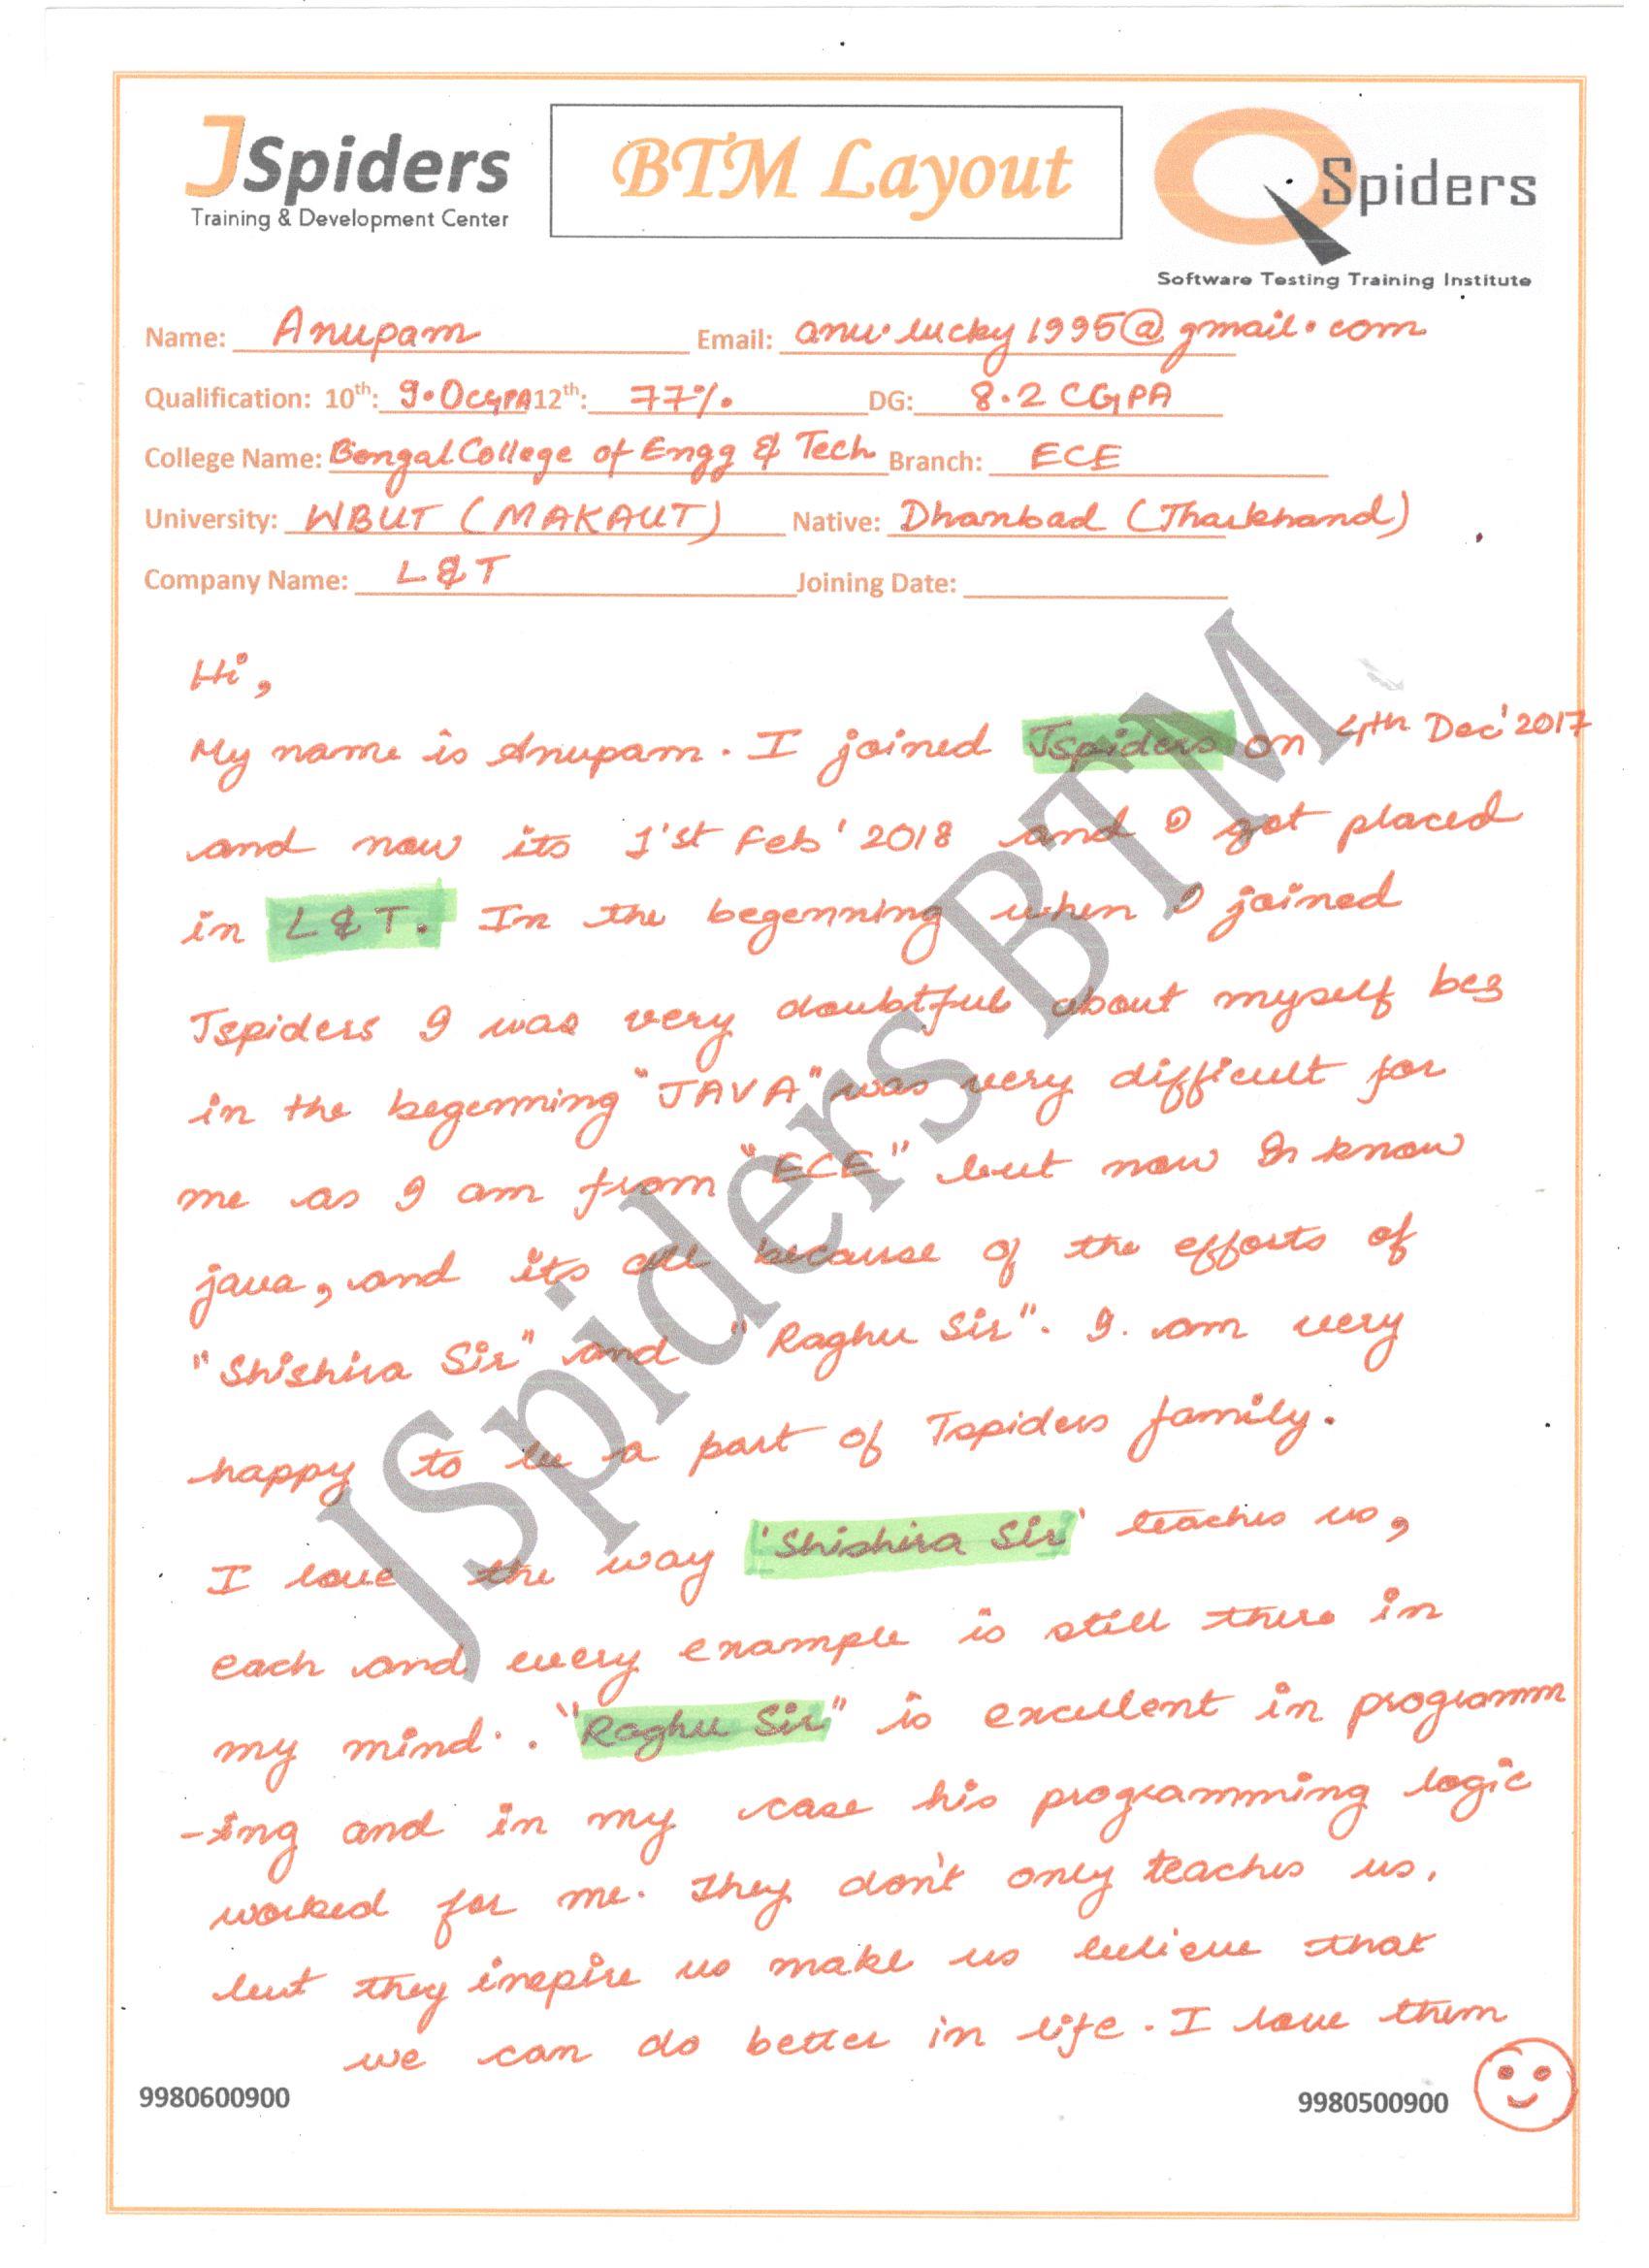 JSpiders
Training & Development Center
BTM Layout
QSpiders
Software Testing Training Institute
Name: Anupam Email: anu.lucky1995@gmail.com
Qualification: 10th: 9.0CGPA 12th: 77% DG: 8.2 CGPA
College Name: Bengal College of Engg & Tech Branch: ECE
University: WBUT (MAKAUT) Native: Dhanbad (Jharkhand)
Company Name: L&T Joining Date:
Hi,
My name is Anupam. I joined Jspiders on 4th Dec'2017
and now its 1'st Feb'2018 and I got placed
in L&T. In the begenning when I joined
Jspiders I was very doubtful about myself bcz
in the begenning "JAVA" was very difficult for
me as I am from "ECE" but now I know
java, and its all because of the efforts of
"Shishira Sir" and "Raghu Sir". I am very
happy to be a part of Jspiders family.
I love the way 'Shishira Sir' teaches us,
each and every example is still there in
my mind. "Raghu Sir" is excellent in programm
-ing and in my case his programming logic
worked for me. They don't only teaches us,
but they inspire us make us believe that
we can do better in life. I love them
9980600900
9980500900
JSpiders BTM